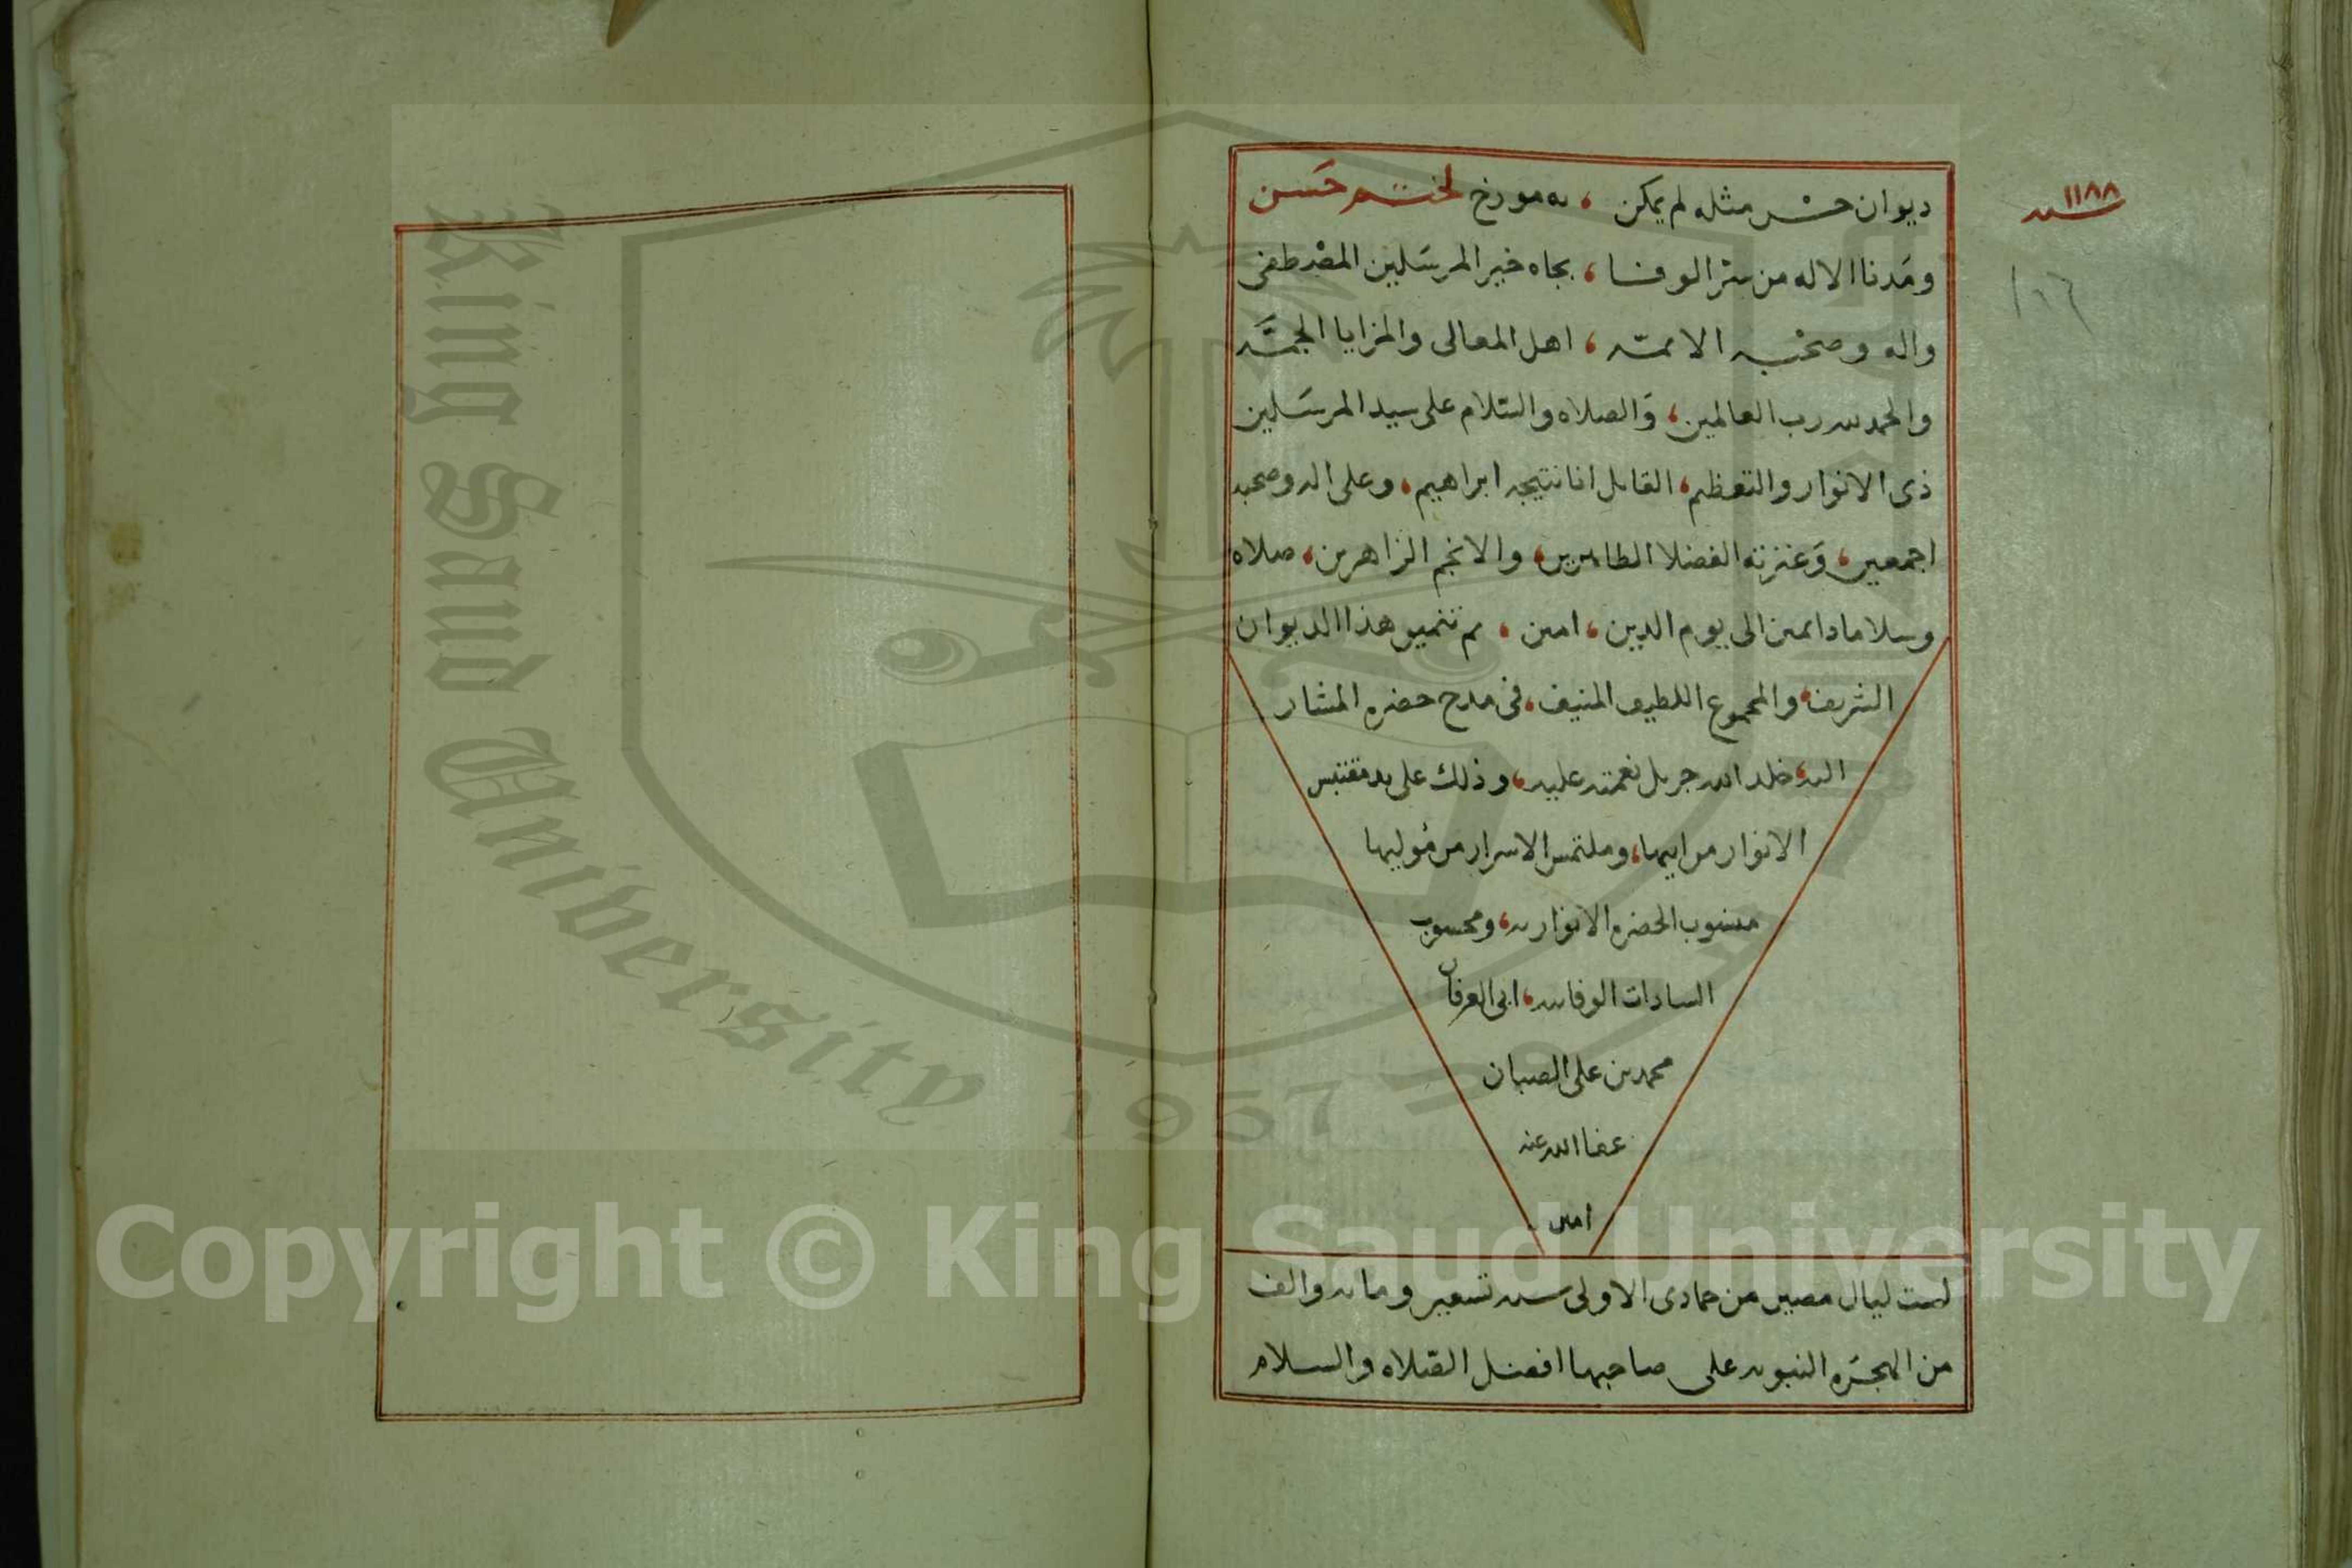 ديوان حسن مثله لم يمكن ، به مورخ لختم حسن
سنه ١١٨٨
ومدنا الاله من سر الوفا ، بجاه خير المرسلين المصطفى
١٠٦
واله وصحبه الائمه ، اهل المعالى والمزايا الجمه
والحمد لله رب العالمين ، والصلاه والسلام على سيد المرسلين
ذى الانوار والتعظيم ، القايل انا نتيجه ابراهيم ، وعلى اله وصحبه
اجمعين ، وعترته الفضلا الطاهرين ، والانجم الزاهرين ، صلاه
وسلاما دايمين الى يوم الدين ، امين ، تم تنميق هذا الديوان
الشريف ، والمجموع اللطيف المنيف ، فى مدح حضره المشار
اليه ، خلد الله جزيل نعمته عليه ، وذلك على يد مقتبس
الانوار من ، وملتمس الاسرار من موليها
منسوب الحضره الانواريه ، ومحسوب
السادات الوفائيه ، ابى العرفان
محمد بن على الصبان
عفا الله عنه
امين
لست ليال مضين من جمادى الاولى سنه تسعين ومائه والف
من الهجره النبويه على صاحبها افضل الصلاه والسلام
King Saud University
1957
Copyright © King Saud University